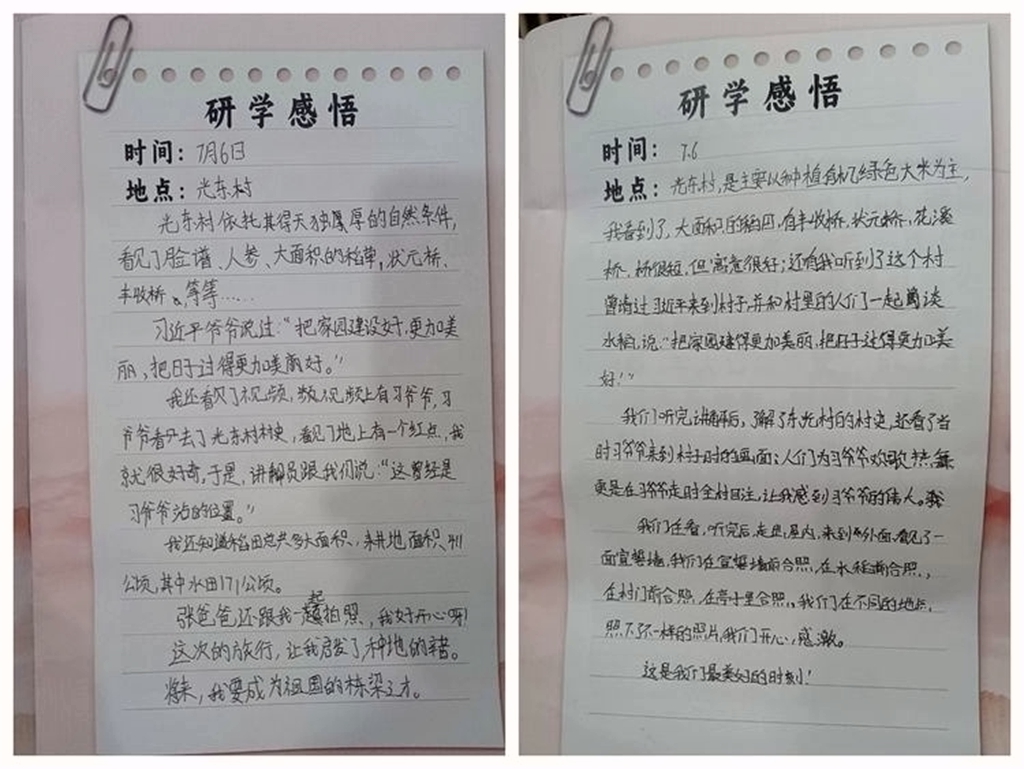 研学感悟
时间：7月6日
地点：光东村
光东村依托其得天独厚的自然条件，
看见了脸谱、人参、大面积的稻草，状元桥、
丰收桥 等等……
习近平爷爷说过：“把家园建设好，更加美
丽，把日子过得更加美 好。”
我还看见了视频， 视频上有习爷爷，习
爷爷 去了光东村村史，看见了地上有一个红点，我
就很好奇，于是，讲解员跟我们说：“这曾经是
习爷爷站的位置。”
我还知道稻田总共多大面积，耕地面积
公顷，其中水田171公顷。
张爸爸还跟我一起拍照，我好开心呀！
这次的旅行，让我启发了，种地的 。
将来，我要成为祖国的栋梁之才。
研学感悟
时间：7.6
地点：光东村，是主要以种植有机绿色大米为主，
我看到了，大面积的稻田，有丰收桥，状元桥，花溪
桥，桥很短，但寓意很好；还有我听到了这个村
曾请过习近平来到村子，并和村里的人们一起 谈
水稻，说：“把家园建得更加美丽，把日子过得更加美
好！”
我们听完讲解后，了解了东光村的村史，还看了当
时习爷爷来到村子时的画面；人们为习爷爷欢歌热舞
更是在习爷爷走时全村目注，让我感到习爷爷的伟人。
我们在看，听完后，走出屋内，来到 外面，看见了一
面宣誓墙，我们在宣誓墙前合照，在水稻前合照，
在村门前合照，在亭子里合照，我们在不同的地点，
照下不一样的照片，我们开心，感激。
这是我们最美好的时刻！